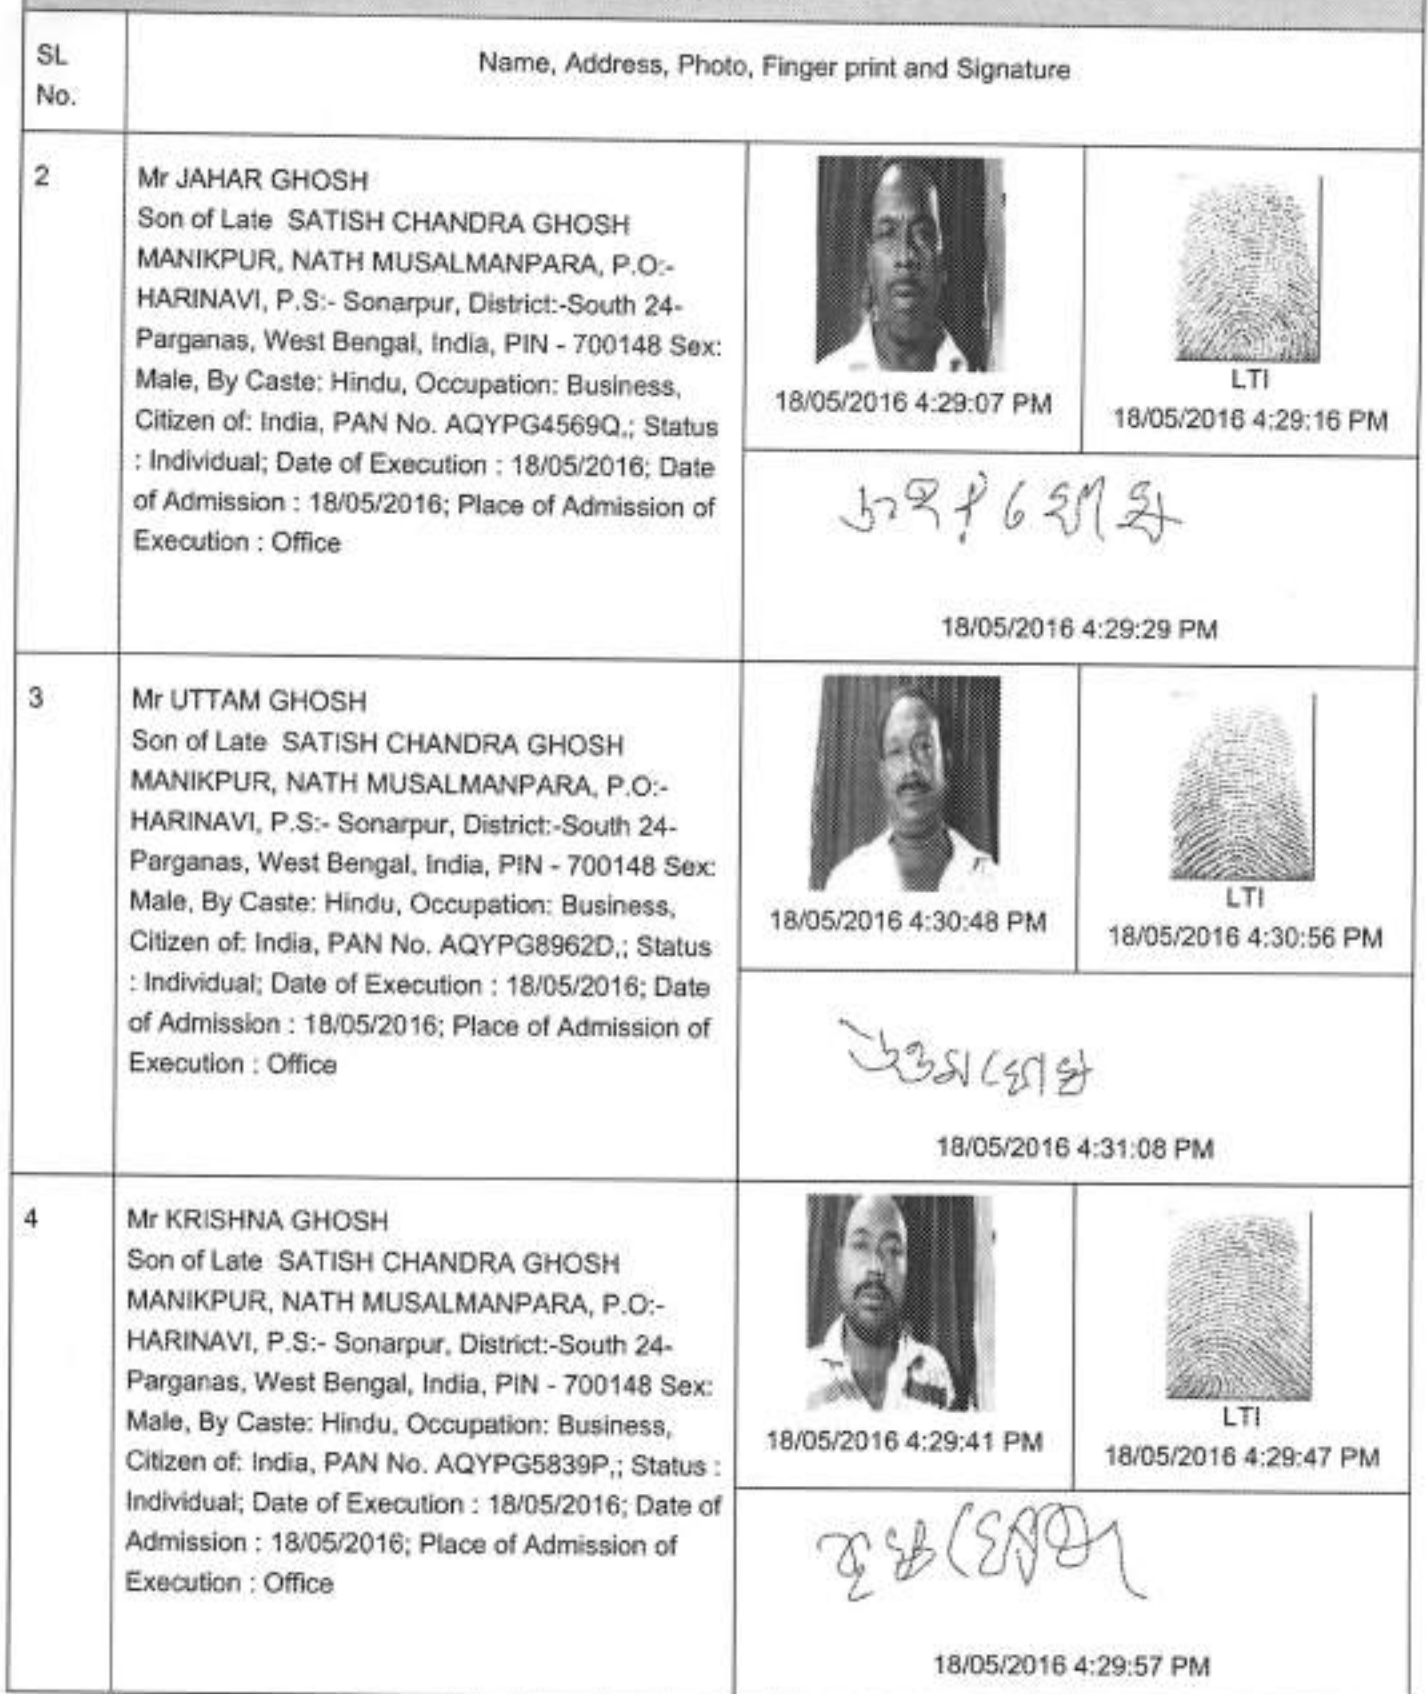 SL
No.
Name, Address, Photo, Finger print and Signature
2
Mr JAHAR GHOSH
Son of Late SATISH CHANDRA GHOSH
MANIKPUR, NATH MUSALMANPARA, P.O:-
HARINAVI, P.S:- Sonarpur, District:-South 24-
Parganas, West Bengal, India, PIN - 700148 Sex:
Male, By Caste: Hindu, Occupation: Business,
Citizen of: India, PAN No. AQYPG4569Q,; Status
: Individual; Date of Execution : 18/05/2016; Date
of Admission : 18/05/2016; Place of Admission of
Execution : Office
18/05/2016 4:29:07 PM
LTI
18/05/2016 4:29:16 PM
18/05/2016 4:29:29 PM
3
Mr UTTAM GHOSH
Son of Late SATISH CHANDRA GHOSH
MANIKPUR, NATH MUSALMANPARA, P.O:-
HARINAVI, P.S:- Sonarpur, District:-South 24-
Parganas, West Bengal, India, PIN - 700148 Sex:
Male, By Caste: Hindu, Occupation: Business,
Citizen of: India, PAN No. AQYPG8962D,; Status
: Individual; Date of Execution : 18/05/2016; Date
of Admission : 18/05/2016; Place of Admission of
Execution : Office
18/05/2016 4:30:48 PM
LTI
18/05/2016 4:30:56 PM
উত্তম ঘোষ
18/05/2016 4:31:08 PM
4
Mr KRISHNA GHOSH
Son of Late SATISH CHANDRA GHOSH
MANIKPUR, NATH MUSALMANPARA, P.O:-
HARINAVI, P.S:- Sonarpur, District:-South 24-
Parganas, West Bengal, India, PIN - 700148 Sex:
Male, By Caste: Hindu, Occupation: Business,
Citizen of: India, PAN No. AQYPG5839P,; Status :
Individual; Date of Execution : 18/05/2016; Date of
Admission : 18/05/2016; Place of Admission of
Execution : Office
18/05/2016 4:29:41 PM
LTI
18/05/2016 4:29:47 PM
18/05/2016 4:29:57 PM